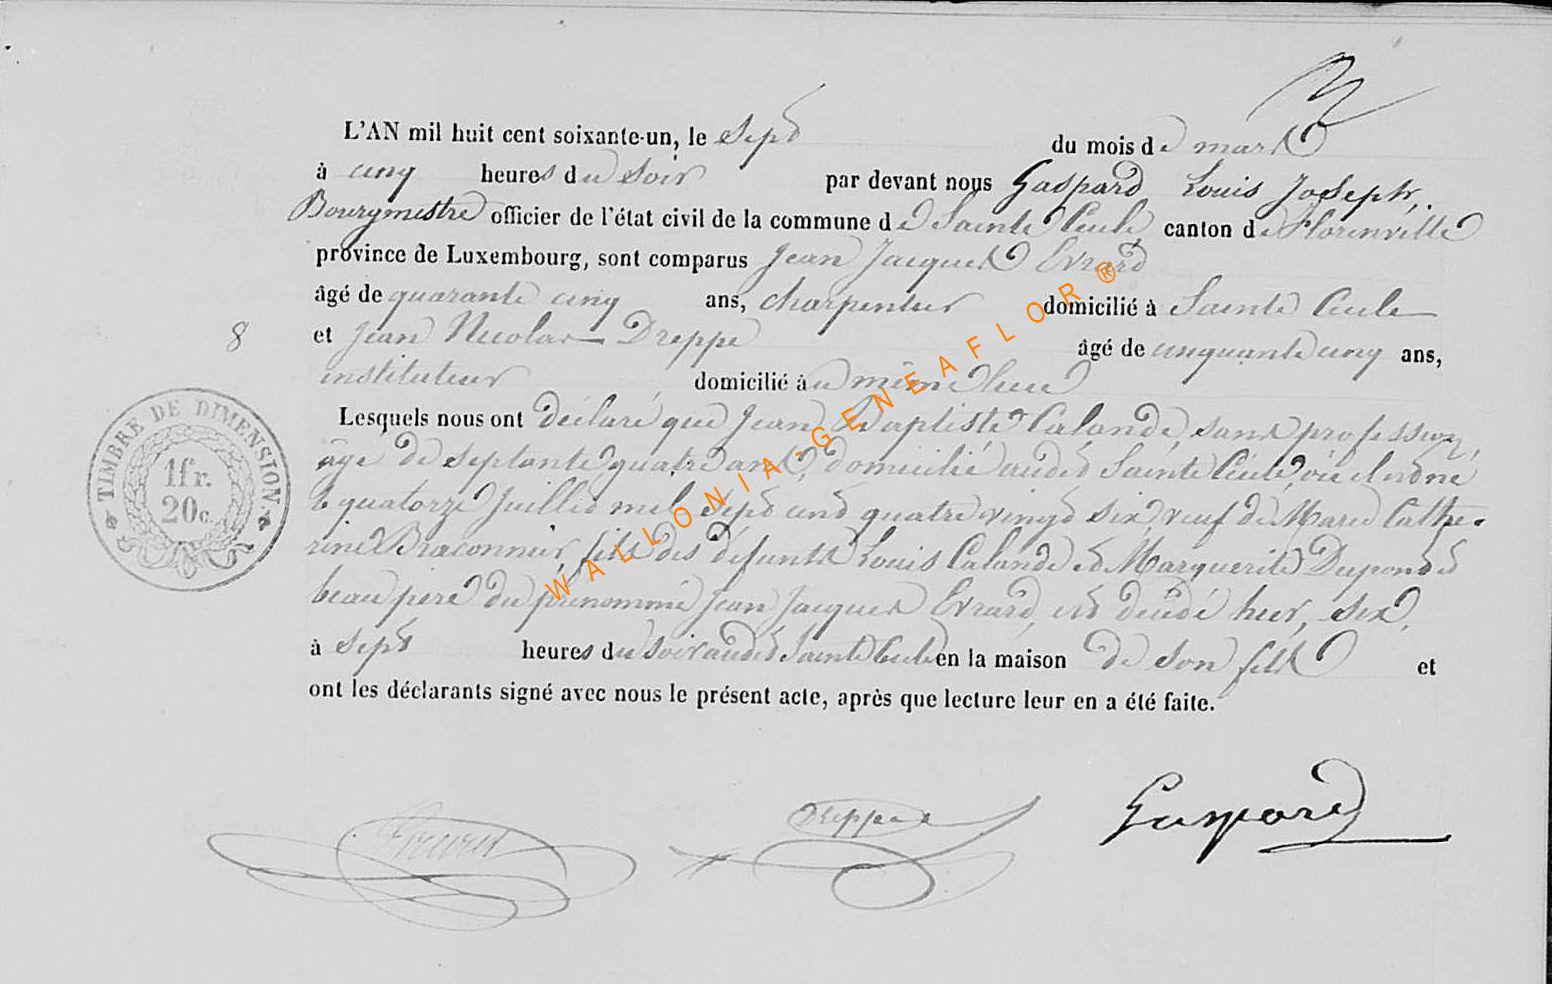 L'AN mil huit cent soixante-un, le sept du mois de mars
à cinq heures du soir par devant nous Gaspard Louis Joseph,
Bourgmestre officier de l'état civil de la commune de Sainte Cécile, canton de Florenville
province de Luxembourg, sont comparus Jean Jacques Evrard
âgé de quarante cinq ans, charpentier domicilié à Sainte Cécile
8 et Jean Nicolas Dreppe âgé de cinquante cinq ans,
instituteur domicilié au même lieu
Lesquels nous ont déclaré que Jean Baptiste Calande, sans profession,
âgé de septante quatre ans, domicilié audit Sainte Cécile, où il est né
le quatorze Juillet mil sept cent quatre vingt six, veuf de Marie Cathe-
rine Braconnier, fils des défunts Louis Calande et Marguerite Dupond et
beau père du prénommé Jean Jacques Evrard, est décédé hier, six,
à sept heures du soir audit Sainte Cécile en la maison de son fils et
ont les déclarants signé avec nous le présent acte, après que lecture leur en a été faite.
TIMBRE DE DIMENSION.
1fr.
20c.
Evrard Dreppe Gaspard
WALLONIA-GENEAFLOR®